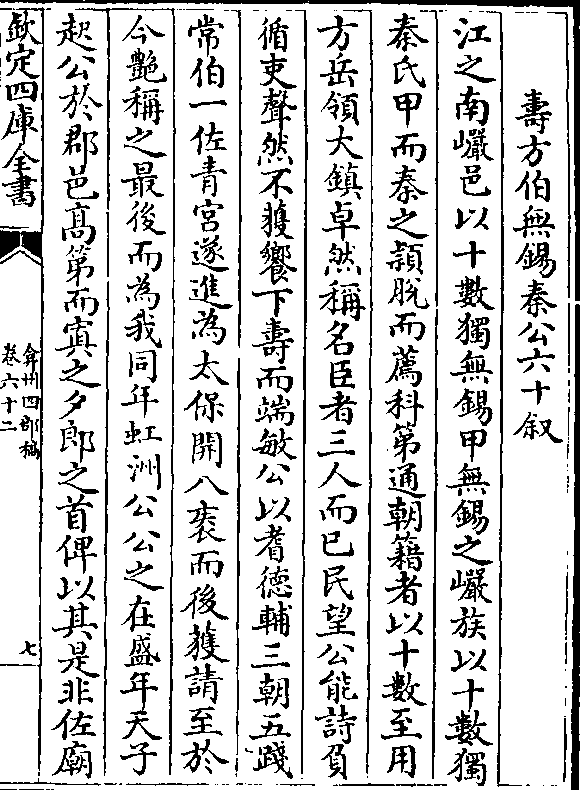 壽方伯無錫秦公六十叙
江之南巖邑以十數獨無錫甲無錫之巖族以十數獨
秦氏甲而秦之頴脫而薦科第通朝籍者以十數至用
方岳領大鎮卓然稱名臣者三人而已民望公能詩負
循吏聲然不獲饗下壽而端敏公以耆德輔三朝五踐
常伯一佐青宮遂進為太保開八袠而後獲請至於
今艶稱之最後而為我同年虹洲公公之在盛年天子
起公於郡邑髙第而寘之夕郎之首俾以其是非佐廟
欽定四庫全書
弇州四部稿
卷六十二
七